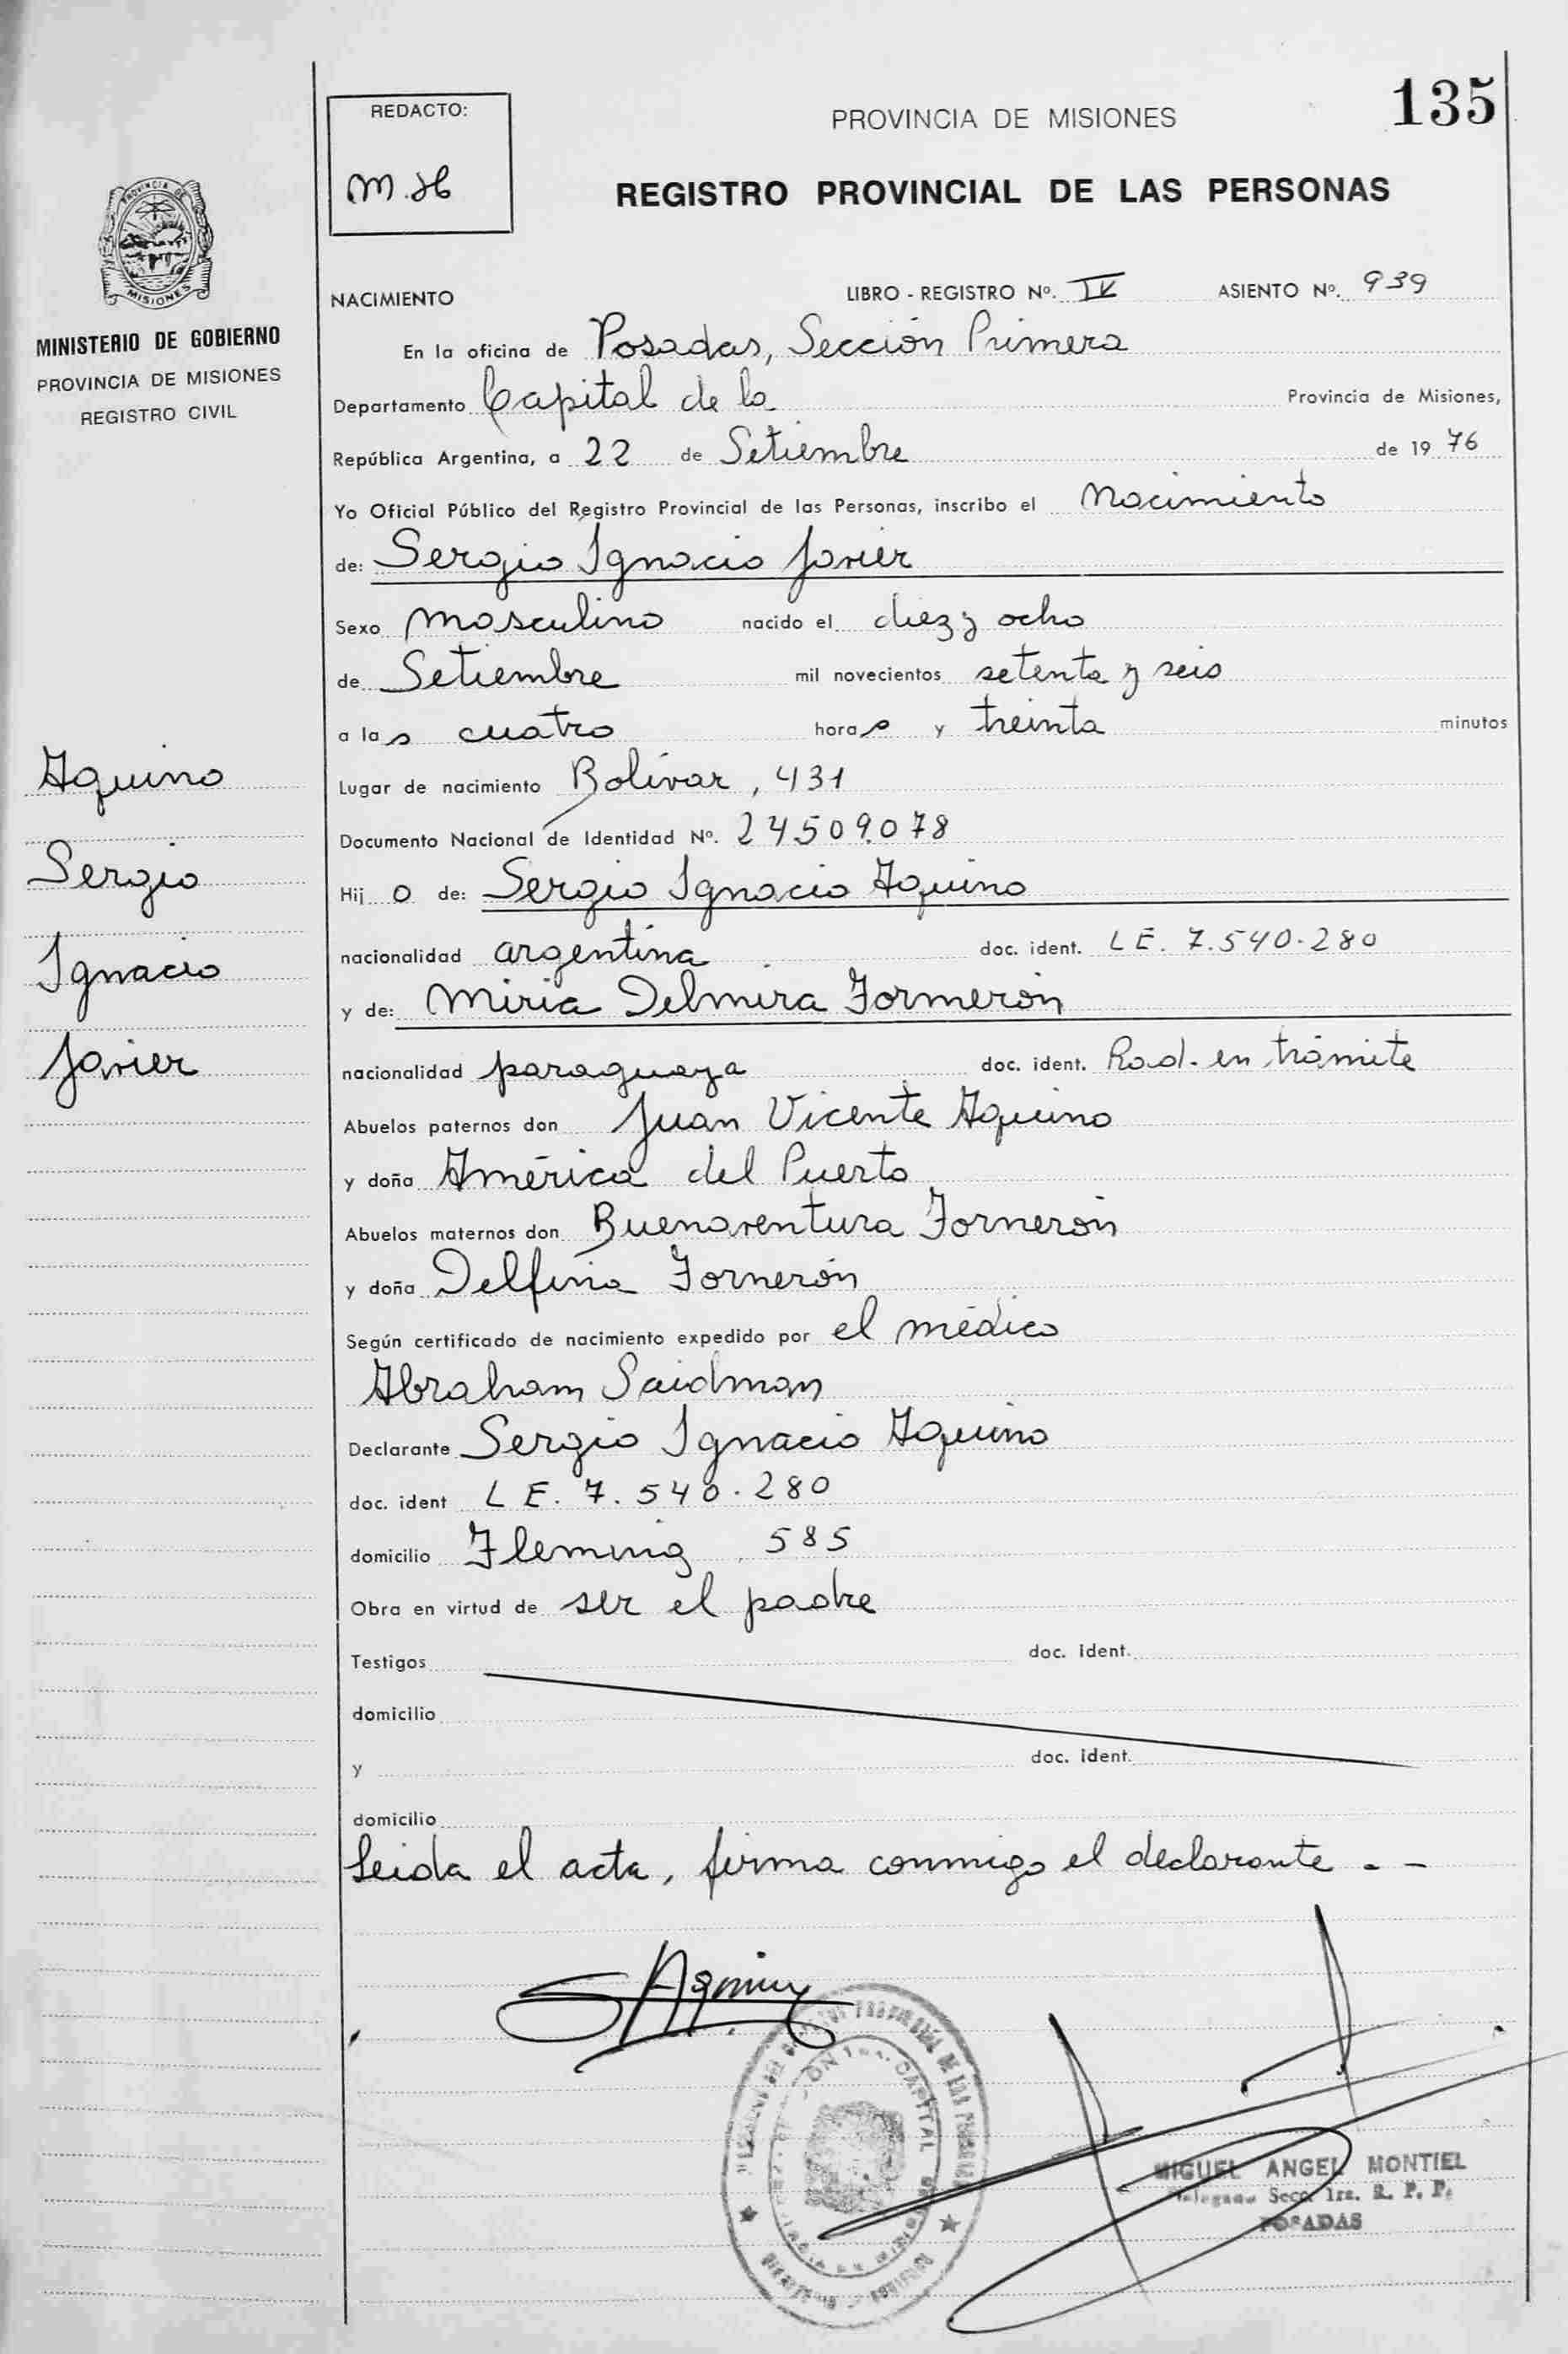 135
REDACTO:
M.H
PROVINCIA DE MISIONES
REGISTRO PROVINCIAL DE LAS PERSONAS
PROVINCIA DE
MISIONES
MINISTERIO DE GOBIERNO
PROVINCIA DE MISIONES
REGISTRO CIVIL
NACIMIENTO LIBRO - REGISTRO Nº. IV ASIENTO Nº. 939
En la oficina de Posadas, Sección Primera
Departamento Capital de la Provincia de Misiones,
República Argentina, a 22 de Setiembre de 19 76
Yo Oficial Público del Registro Provincial de las Personas, inscribo el Nacimiento
de: Sergio Ignacio Javier
Sexo masculino nacido el diez y ocho
de Setiembre mil novecientos setenta y seis
a las cuatro horas y treinta minutos
Lugar de nacimiento Bolívar, 431
Documento Nacional de Identidad Nº. 24.509.078
Hij o de: Sergio Ignacio Aquino
nacionalidad argentina doc. ident. LE. 7.540.280
y de: Miria Delmira Fornerón
nacionalidad paraguaya doc. ident. Rad. en trámite
Abuelos paternos don Juan Vicente Aquino
y doña América del Puerto
Abuelos maternos don Buenaventura Fornerón
y doña Delfina Fornerón
Según certificado de nacimiento expedido por el médico
Abraham Saidman
Declarante Sergio Ignacio Aquino
doc. ident LE. 7.540.280
domicilio Fleming 585
Obra en virtud de ser el padre
Testigos doc. ident.
domicilio
y doc. ident.
domicilio
Leida el acta, firma conmigo el declarante . -
Aquino
Sergio
Ignacio
Javier
SAquino
CAPITAL
MIGUEL ANGEL MONTIEL
Delegado Secc. 1ra. R. P. P.
POSADAS